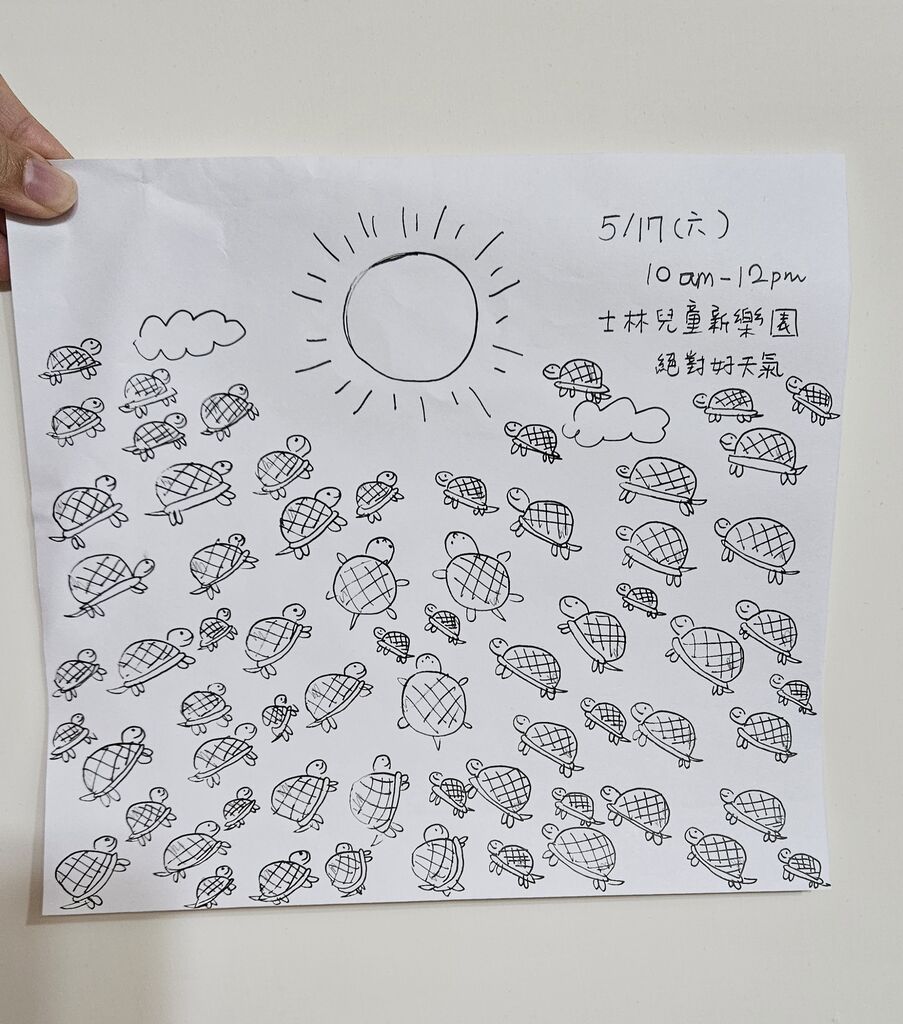 5/17(六)
10am-12pm
士林兒童新樂園
絕對好天氣